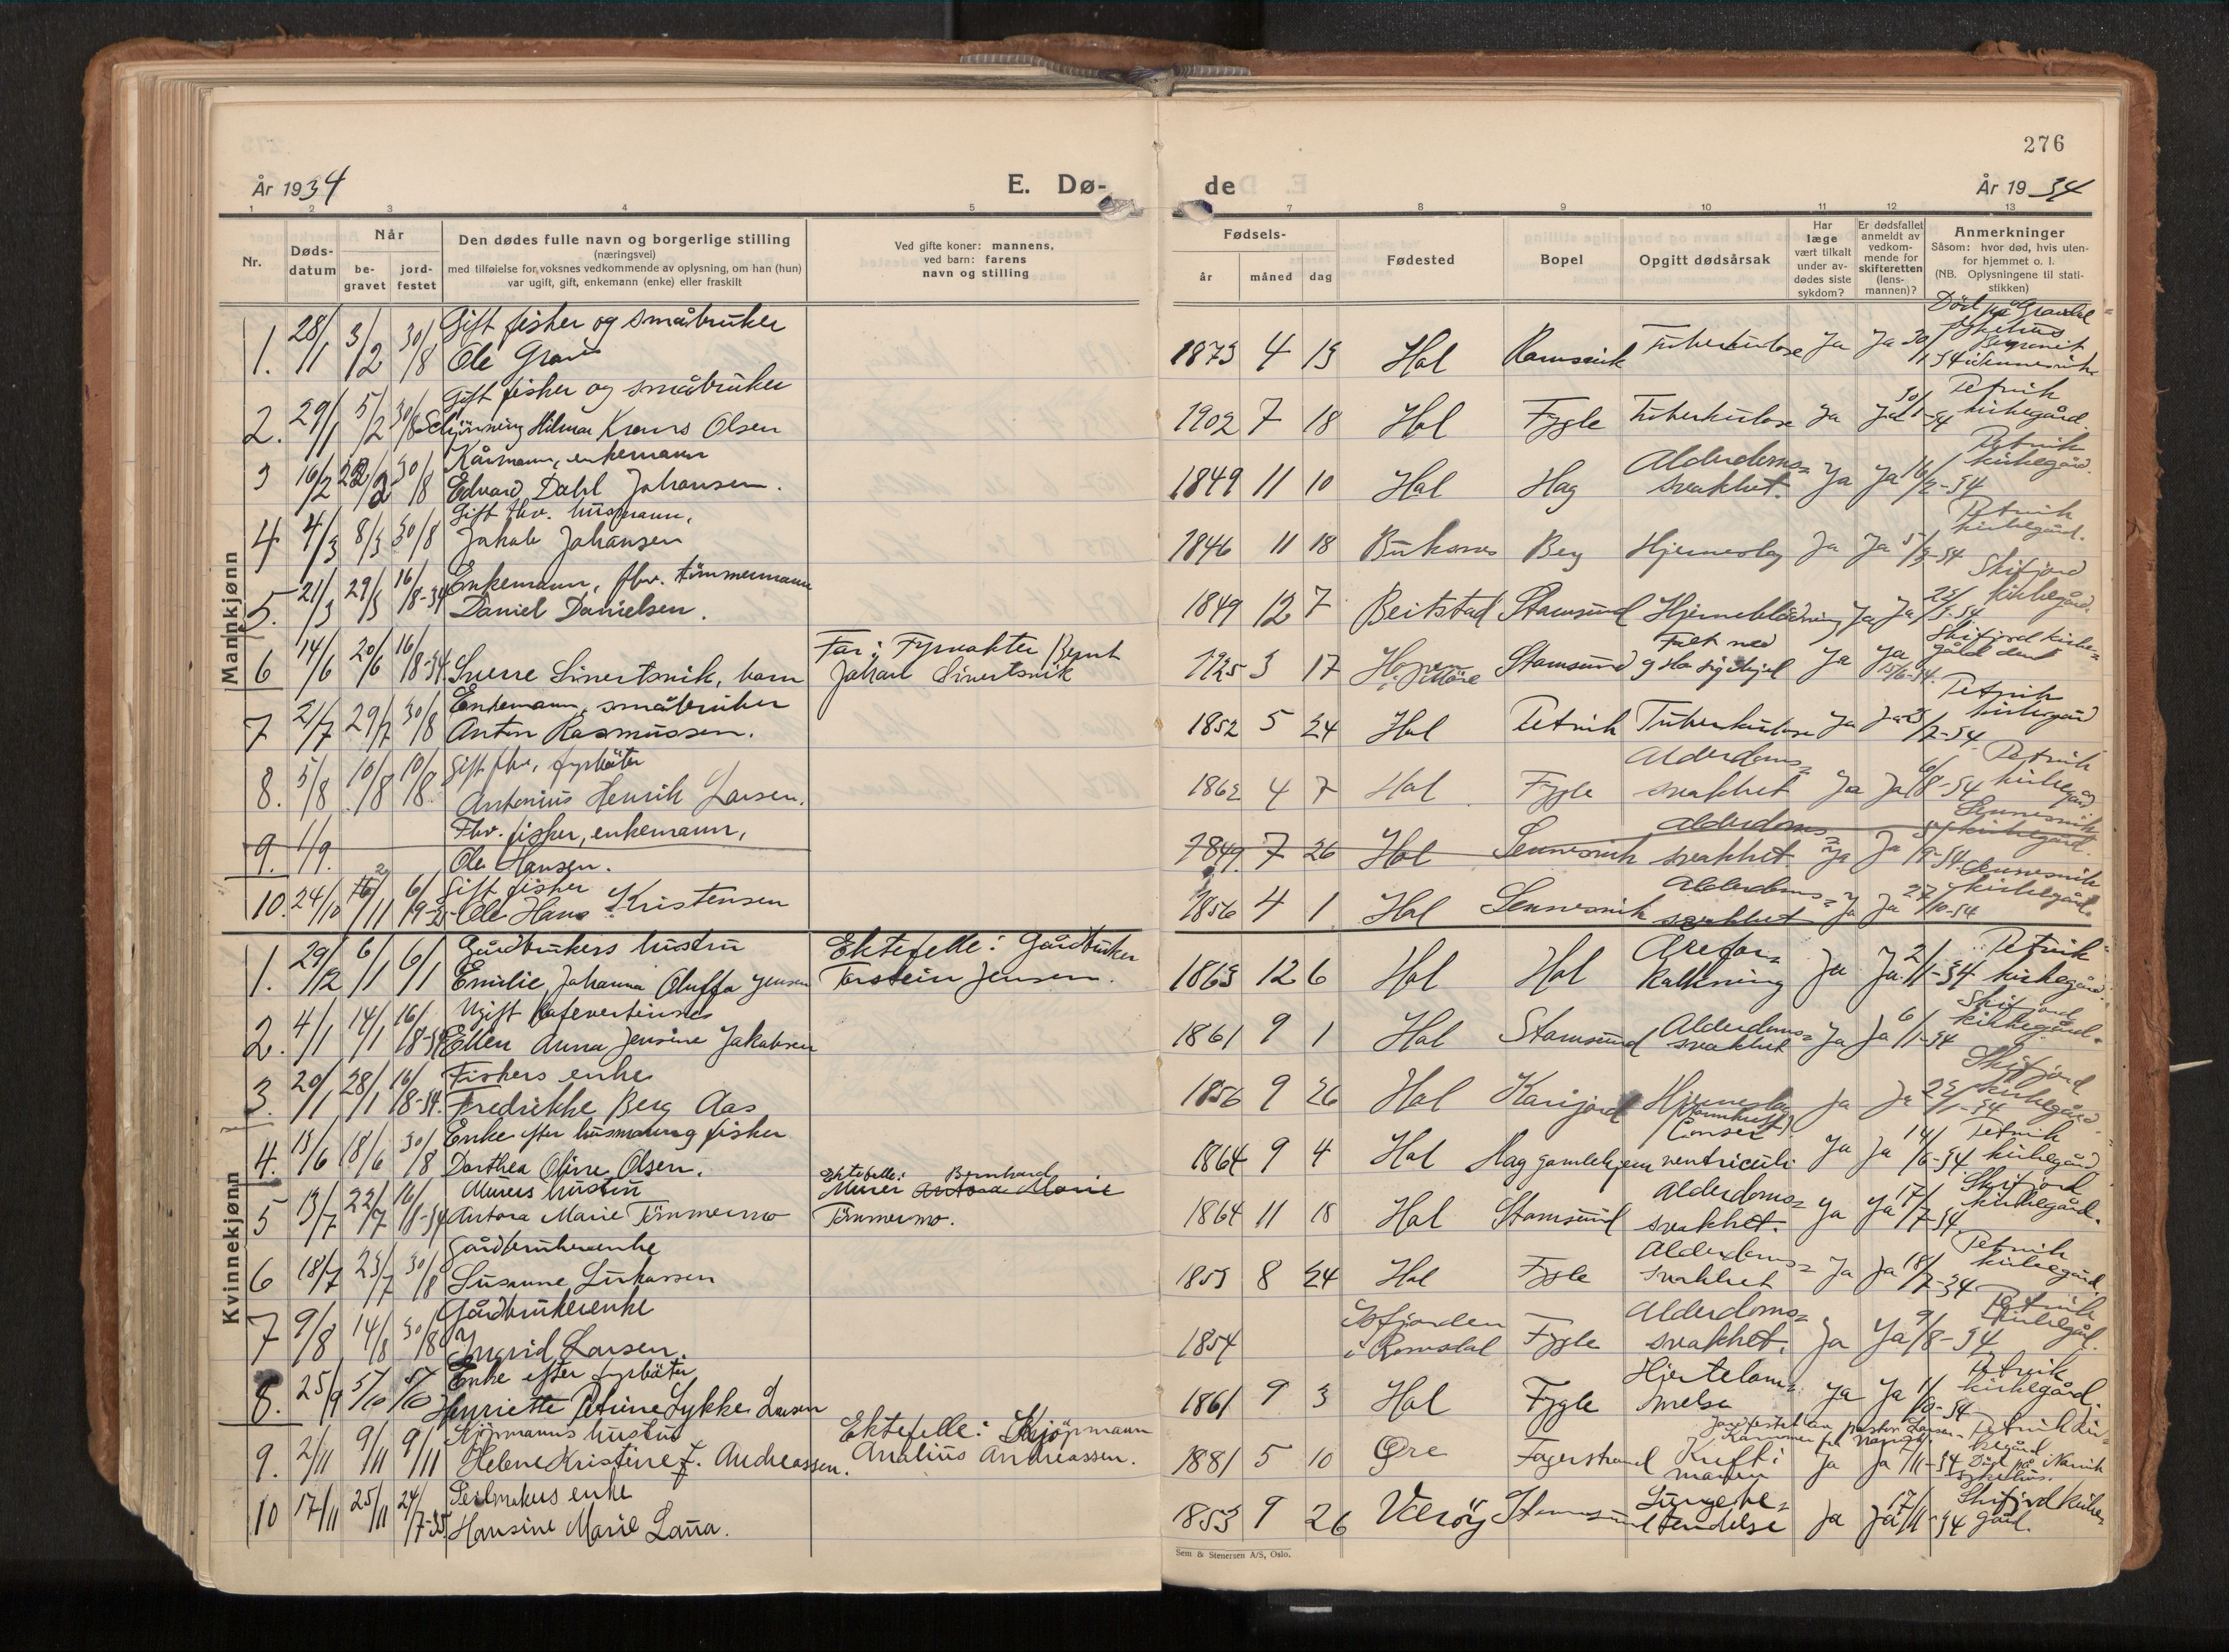 276
År 1934
E. Dø-
de
År 1934
1 2 3 4 5 7 8 9 10 11 12 13
Nr.
Døds-
datum
Når
be-
gravet
jord-
festet
Den dødes fulle navn og borgerlige stilling
(næringsvei)
med tilføielse for voksnes vedkommende av oplysning, om han (hun)
var ugift, gift, enkemann (enke) eller fraskilt
Ved gifte koner: mannens,
ved barn: farens
navn og stilling
Fødsels-
år måned dag
Fødested
Bopel
Opgitt dødsårsak
Har
læge
vært tilkalt
under av-
dødes siste
sykdom?
Er dødsfallet
anmeldt av
vedkom-
mende for
skifteretten
(lens-
mannen)?
Anmerkninger
Såsom: hvor død, hvis uten-
for hjemmet o. l.
(NB. Oplysningene til stati-
stikken)
Mannkjønn
1. 28/1 3/2 30/8 Gift fisker og småbruker
Ole 1873 4 13 Hol Ramsvik Tuberkulose Ja Ja 30/1 34
2. 29/1 5/2 30/8 Gift fisker og småbruker
Schjönning Hilmar Olsen 1902 7 18 Hol Fygle Tuberkulose Ja Ja 30/1-34 Petvik
kirkegård.
3 16/2 22/2 30/8 Kårmann, enkemann
Edvard Dahl Johansen. 1849 11 10 Hol Hag Alderdoms=
svakhet. Ja Ja 16/2-34 Petvik
kirkegård.
4 4/3 8/3 30/8 Gift fhv. husmann.
Jakob Johansen 1846 11 18 Buksnes Berg Hjerneslag Ja Ja 5/3-34 Petvik
kirkegård.
5. 21/3 29/3 16/8-34 Enkemann, fhv. tömmermann
Daniel Danielsen. 1849 12 7 Beitstad Stamsund Hjerneblödning Ja Ja Skifjord
kirkegård.
6 14/6 20/6 16/8-34 Sverre Sivertsvik, barn Far: Fyrvokter Bernt
Johan Sivertsvik 1925 3 17 Stamsund Falt ned
og slo sig ihjel Ja Ja 15/6-34. Skifjord kirke=
gård
7 21/7 29/7 30/8 Enkemann, småbruker
Anton Rasmussen. 1852 5 24 Hol Petvik Tuberkulose Ja Ja Petvik
kirkegård
8. 5/8 10/8 10/8 Gift fhv. fyrböter
Antonius Henrik Larsen. 1862 4 7 Hol Fygle Alderdoms=
svakhet Ja Ja 6/8-34 Petvik
kirkegård
9. 1/9. Fhv. fisker, enkemann,
Ole Hansen. 1849. 7 26 Hol Sennesvik Alderdoms=
svakhet. Ja Ja Sennesvik
kirkegård.
10. 24/10 2/11 6/9-35 Gift fisker
Ole Hans Kristensen 1856 4 1 Hol Sennesvik Alderdoms=
svakhet Ja Ja 27/10-34 Sennesvik
kirkegård.
Kvinnekjønn
1. 29/12 6/1 6/1 Gårdbrukers hustru
Emilie Johanna Oluffa Jensen Ektefelle: Gårdbruker
Torstein Jensen. 1863 12 6 Hol Hol Årefor=
kalkning Ja Ja 2/1-34 Petvik
kirkegård.
2. 4/1 14/1 16/8-34 Ugift kafevertinne
Ellen Anna Jensine Jakobsen 1861 9 1 Hol Stamsund Alderdoms=
svakhet Ja Ja 6/1-34 Skifjord
kirkegård.
3. 20/1 28/1 16/8-34. Fiskers enke
Fredrikke Berg Aas 1856 9 26 Hol Hjerneslag Ja Ja 23/1-34 Skifjord
kirkegård.
4. 13/6 18/6 30/8 Enke efter husmann og fisker
Dorthea Oline Olsen. 1864 9 4 Hol Hag gamlehjem Cancer
ventriculi Ja Ja 14/6-34 Petvik
kirkegård
5 13/7 22/7 16/8-34 Murers hustru
Antora Marie Tömmermo Ektefelle: Bernhard
Murer Antora Marie
Tömmermo. 1864 11 18 Hol Stamsund Alderdoms=
svakhet. Ja Ja 17/7-34 Skifjord
kirkegård.
6 18/7 23/7 30/8 Gårdbrukerenke
Susanne Lukassen 1853 8 24 Hol Fygle Alderdoms=
svakhet Ja Ja 18/7-34 Petvik
kirkegård
7 9/8 14/8 30/8 Gårdbrukerenke
Ingrid Larsen. 1854 Isfjorden
i Romsdal Fygle Alderdoms=
svakhet. Ja Ja 9/8-34 Petvik
kirkegård.
8. 25/9 5/10 5/10 Enke efter fyrböter
Henriette Petrine Lykke Larsen 1861 9 3 Hol Fygle Hjertelam=
melse Ja Ja 1/10-34 Petvik
kirkegård.
9. 2/11 9/11 9/11 Kjöpmanns hustru
Helene Kristine F. Andreassen. Ektefelle: Kjöpmann
Analius Andreassen. 1881 5 10 Øre Fagerstrand Kreft i
maven Ja Ja /11-34 Petvik kir=
kegård
Död på Narvik
sykehus.
10 17/11 25/11 24/7-35 Seilmakers enke
Hansine Marie Laua. 1853 9 26 Værøy Stamsund Lungebe=
tendelse Ja Ja 17/11-34 Skifjord kirke=
gård.
Sem & Stenersen A/S, Oslo.